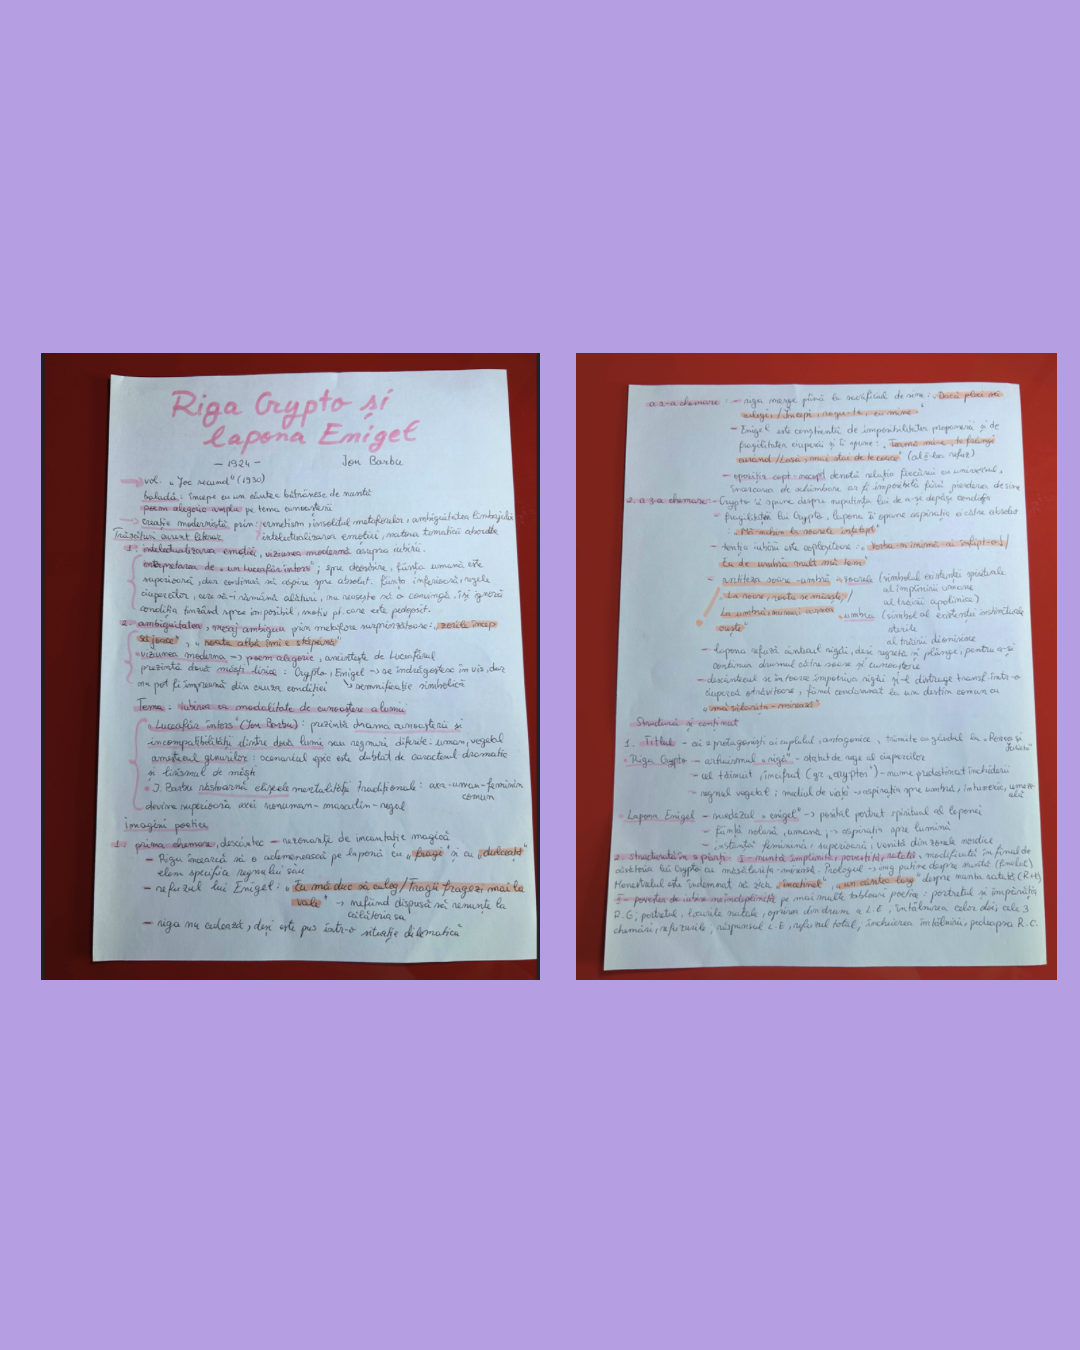 Riga Crypto și
lapona Enigel
- 1924 - Ion Barbu
vol. „Joc secund" (1930)
baladă: începe cu un cântec bătrânesc de nuntă
poem alegoric amplu pe tema cunoașterii
creație modernistă prin: ermetism, insolitul metaforelor, ambiguitatea limbajului
Trăsături curent literar intelectualizarea emoției, natura tematicii abordate
1. intelectualizarea emoției, viziunea modernă asupra iubirii.
interpretarea de „un luceafăr întors"; spre deosebire, ființa umană este
superioară, dar continuă să aspire spre absolut. Ființa inferioară, regele
ciupercilor, cere să-i rămână alături, nu reușește să o convingă. Își ignoră
condiția tinzând spre imposibil, motiv pt. care este pedepsit.
2. ambiguitatea, mesaj ambiguu prin metafore surprinzătoare: „zorile încep
să joace", „roata albă îmi e stăpână"
viziunea modernă -> poem alegoric, amintește de Luceafărul
prezintă două măști lirice: Crypto, Enigel -> se îndrăgostesc în vis, dar
nu pot fi împreună din cauza condiției semnificație simbolică
Tema: iubirea ca modalitate de cunoaștere a lumii
„Luceafăr întors" (Ion Barbu): prezintă drama cunoașterii și
incompatibilității dintre două lumi sau regnuri diferite: uman, vegetal
amestecul genurilor: scenariul epic este dublat de caracterul dramatic
și lirismul de măști
I. Barbu răstoarnă clișeele mentalității tradiționale: axa-uman-feminin
comun
devine superioară axei nonuman-masculin-regal
imagini poetice
1. prima chemare, descântec - rezonanțe de incantație magică
- Riga încearcă să o ademenească pe laponă cu „fragi" și cu „dulceață"
elem specifice regnului său
- refuzul lui Enigel: „Eu mă duc să culeg/Fragii fragezi mai la
vale" -> nefiind dispusă să renunțe la
călătoria sa
- riga nu cedează, deși este pus într-o situație dilematică
a 2-a chemare: - riga merge până la sacrificiul de sine: „Dacă pleci să
culegi, / Începi, rogu-te, cu mine"
- Enigel este conștientă de imposibilitatea propunerii și de
fragilitatea ciupercii și îi spune: „Teamă mi-e, te frângi
curând / Lasă, mai stai de te coace" (al 2-lea refuz)
- opoziția copt-necopt denotă relația fiecărui cu universul,
încercarea de schimbare ar fi imposibilă fără pierderea de sine
2. a 3-a chemare: - Crypto îi spune despre neputința lui de a-și depăși condiția
- fragilității lui Crypto, lapona îi opune aspirația către absolut
: „Mă-nchin la soarele înțelept"
- tentația iubirii este copleșitoare: „Vorba-n inimă-ai înfipt-o! /
Eu de umbră mult mă tem"
- antiteza soare-umbră soarele (simbolul existenței spirituale
al împlinirii umane
al trăirii apolinice)
„La soare, roata se mărește; /
La umbră, numai carnea umbra (simbol al existenței instinctuale
crește" sterile
al trăirii dionisiace
- lapona refuză cântecul rigăi, deși regretă și plânge, pentru a-și
continua drumul către soare și cunoaștere
- descântecul se întoarce împotriva rigăi și-l distruge transf. într-o
ciupercă otrăvitoare, fiind condamnat la un destin comun cu
„măsălarița-mireasă"
Structură și conținut
1. Titlul - cei 2 protagoniști ai cuplului, antagonice, trimite cu gândul la „Romeo și
Julieta"
Riga Crypto - arhaismul „rigă" - statut de rege al ciupercilor
- cel tăinuit, încifrat (gr „cryptos") - nume predestinat închiderii
- regnul vegetal; mediul de viață -> aspirație spre umbră, întuneric, umezeală
Lapona Enigel - suedezul „enigel" -> posibil portret spiritual al laponei
- ființă solară, umană, -> aspirație spre lumină
- instanță feminină: superioară; venită din zonele nordice
2. structurată în 2 părți: I - nuntă împlinită, povestită, ratată, modificată în finalul de
căsătoria lui Crypto cu măsălarița-mireasă. Prologul -> mg puține despre nuntă (finalul)
Menestrelul este îndemnat să zică „încetinel", „un cântec larg" despre nunta ratată (R+E)
II - povestea de iubire neîndeplinită pe mai multe tablouri poetice: portretul și împărăția
R.C; portretul, locurile natale, oprirea din drum a L.E, întâlnirea celor doi, cele 3
chemări, refuzurile, răspunsul L.E, refuzul total, încheierea întâlnirii, pedeapsa R.C.